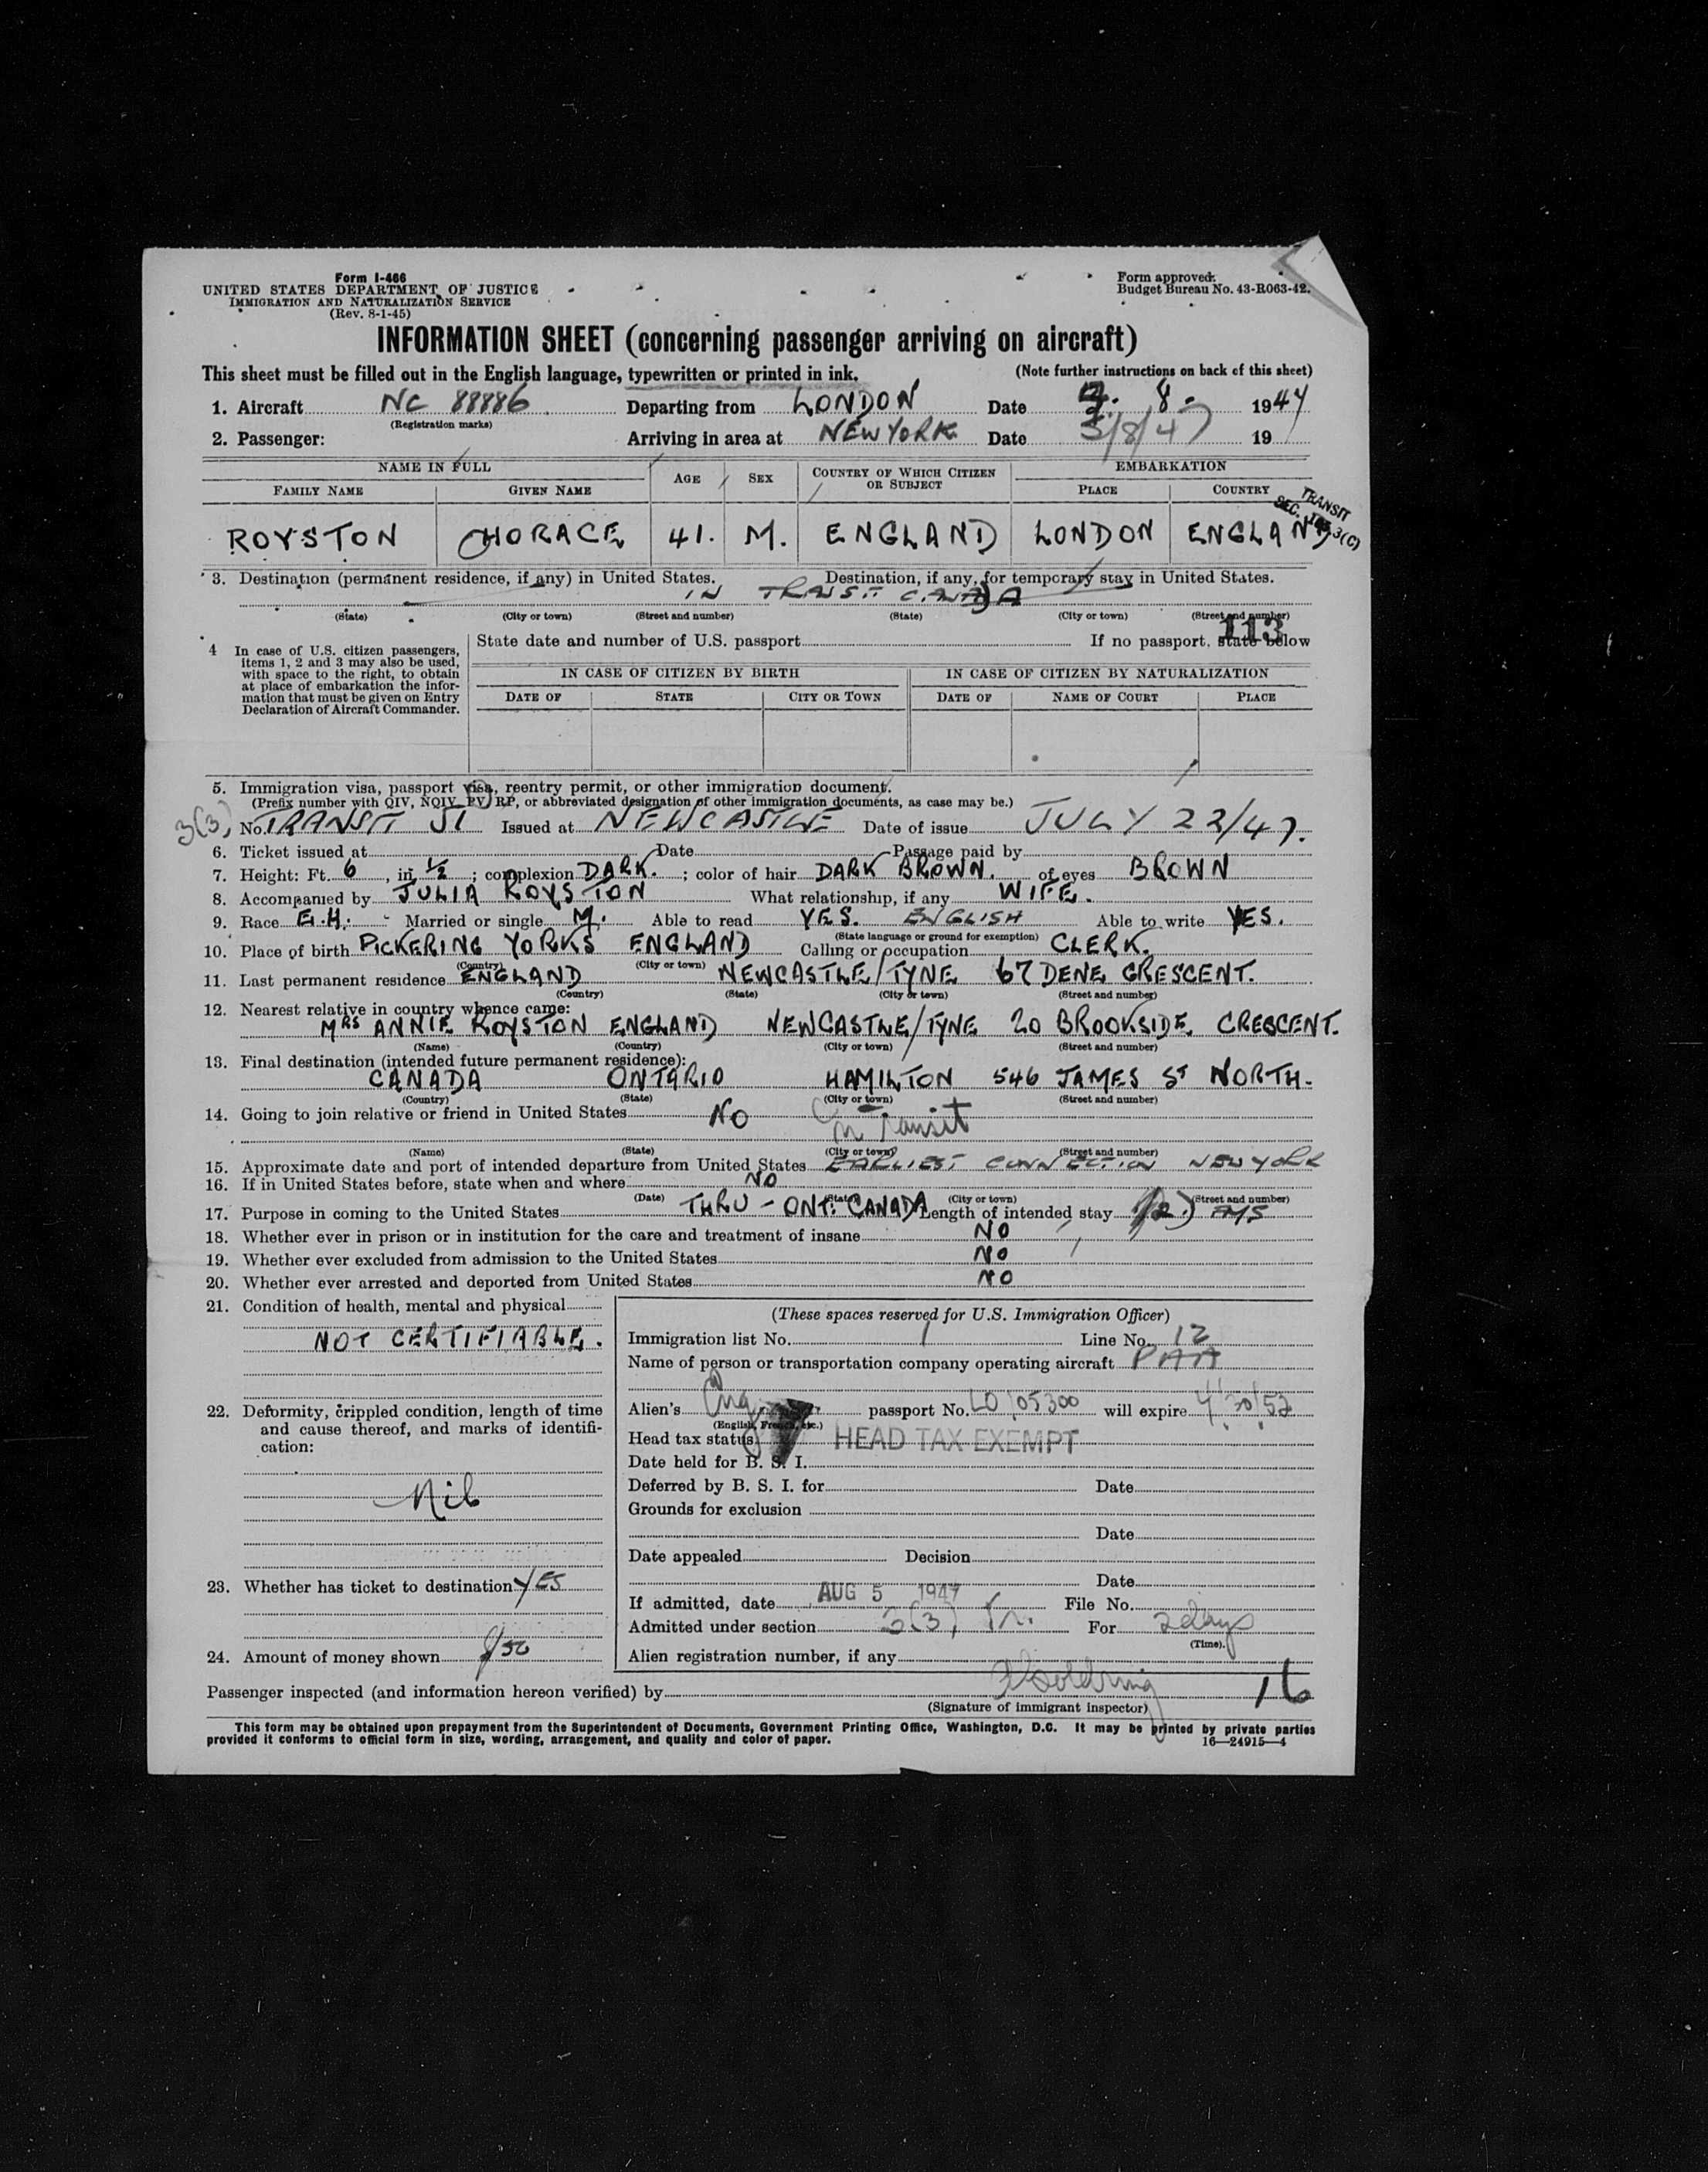 Form I-466
UNITED STATES DEPARTMENT OF JUSTICE
IMMIGRATION AND NATURALIZATION SERVICE
(Rev. 8-1-45)
Form approved.
Budget Bureau No. 43-R063-42.
INFORMATION SHEET (concerning passenger arriving on aircraft)
This sheet must be filled out in the English language, typewritten or printed in ink. (Note further instructions on back of this sheet)
1. Aircraft NC 88886 Departing from LONDON Date 8. 1947
(Registration marks)
2. Passenger: Arriving in area at NEW YORK Date 5/8/47 19
NAME IN FULL AGE SEX COUNTRY OF WHICH CITIZEN OR SUBJECT EMBARKATION
FAMILY NAME GIVEN NAME PLACE COUNTRY
TRANSIT
SEC. 3(C)
ROYSTON HORACE 41. M. ENGLAND LONDON ENGLAND
3. Destination (permanent residence, if any) in United States. Destination, if any, for temporary stay in United States.
IN TRANSIT CANADA
(State) (City or town) (Street and number) (State) (City or town) (Street and number)
113
4 In case of U.S. citizen passengers, items 1, 2 and 3 may also be used, with space to the right, to obtain at place of embarkation the information that must be given on Entry Declaration of Aircraft Commander.
State date and number of U.S. passport If no passport, state below
IN CASE OF CITIZEN BY BIRTH IN CASE OF CITIZEN BY NATURALIZATION
DATE OF STATE CITY OR TOWN DATE OF NAME OF COURT PLACE
5. Immigration visa, passport visa, reentry permit, or other immigration document.
(Prefix number with QIV, NQIV, PV, RP, or abbreviated designation of other immigration documents, as case may be.)
3(3) No. TRANSIT 51 Issued at NEWCASTLE Date of issue JULY 23/47.
6. Ticket issued at Date Passage paid by
7. Height: Ft. 6, in. 1/2; complexion DARK.; color of hair DARK BROWN. of eyes BROWN
8. Accompanied by JULIA ROYSTON What relationship, if any WIFE.
9. Race E.H. Married or single M. Able to read YES. ENGLISH Able to write YES.
(State language or ground for exemption)
10. Place of birth PICKERING YORKS ENGLAND Calling or occupation CLERK.
(Country) (City or town)
11. Last permanent residence ENGLAND NEWCASTLE/TYNE 67 DENE CRESCENT.
(Country) (State) (City or town) (Street and number)
12. Nearest relative in country whence came:
MRS ANNIE ROYSTON ENGLAND NEWCASTLE/TYNE 20 BROOKSIDE CRESCENT.
(Name) (Country) (City or town) (Street and number)
13. Final destination (intended future permanent residence):
CANADA ONTARIO HAMILTON 546 JAMES ST NORTH.
(Country) (State) (City or town) (Street and number)
14. Going to join relative or friend in United States NO In Transit
(Name) (State) (City or town) (Street and number)
15. Approximate date and port of intended departure from United States EARLIEST CONNECTION NEW YORK
16. If in United States before, state when and where NO
(Date) (State) (City or town) (Street and number)
17. Purpose in coming to the United States THRU - ONT. CANADA Length of intended stay
18. Whether ever in prison or in institution for the care and treatment of insane NO
19. Whether ever excluded from admission to the United States NO
20. Whether ever arrested and deported from United States NO
21. Condition of health, mental and physical
NOT CERTIFIABLE.
22. Deformity, crippled condition, length of time and cause thereof, and marks of identification:
Nil
23. Whether has ticket to destination YES
24. Amount of money shown $50
(These spaces reserved for U.S. Immigration Officer)
Immigration list No. 1 Line No. 12
Name of person or transportation company operating aircraft PAA
Alien's Eng. passport No. LO 105300 will expire 4/30/52
(English, French, etc.)
Head tax status HEAD TAX EXEMPT
Date held for B. S. I.
Deferred by B. S. I. for Date
Grounds for exclusion
Date
Date appealed Decision
Date
If admitted, date AUG 5 1947 File No.
Admitted under section 3(3) For 2 days
(Time).
Alien registration number, if any
Passenger inspected (and information hereon verified) by 16
(Signature of immigrant inspector)
This form may be obtained upon prepayment from the Superintendent of Documents, Government Printing Office, Washington, D.C. It may be printed by private parties
provided it conforms to official form in size, wording, arrangement, and quality and color of paper. 16—24915-4